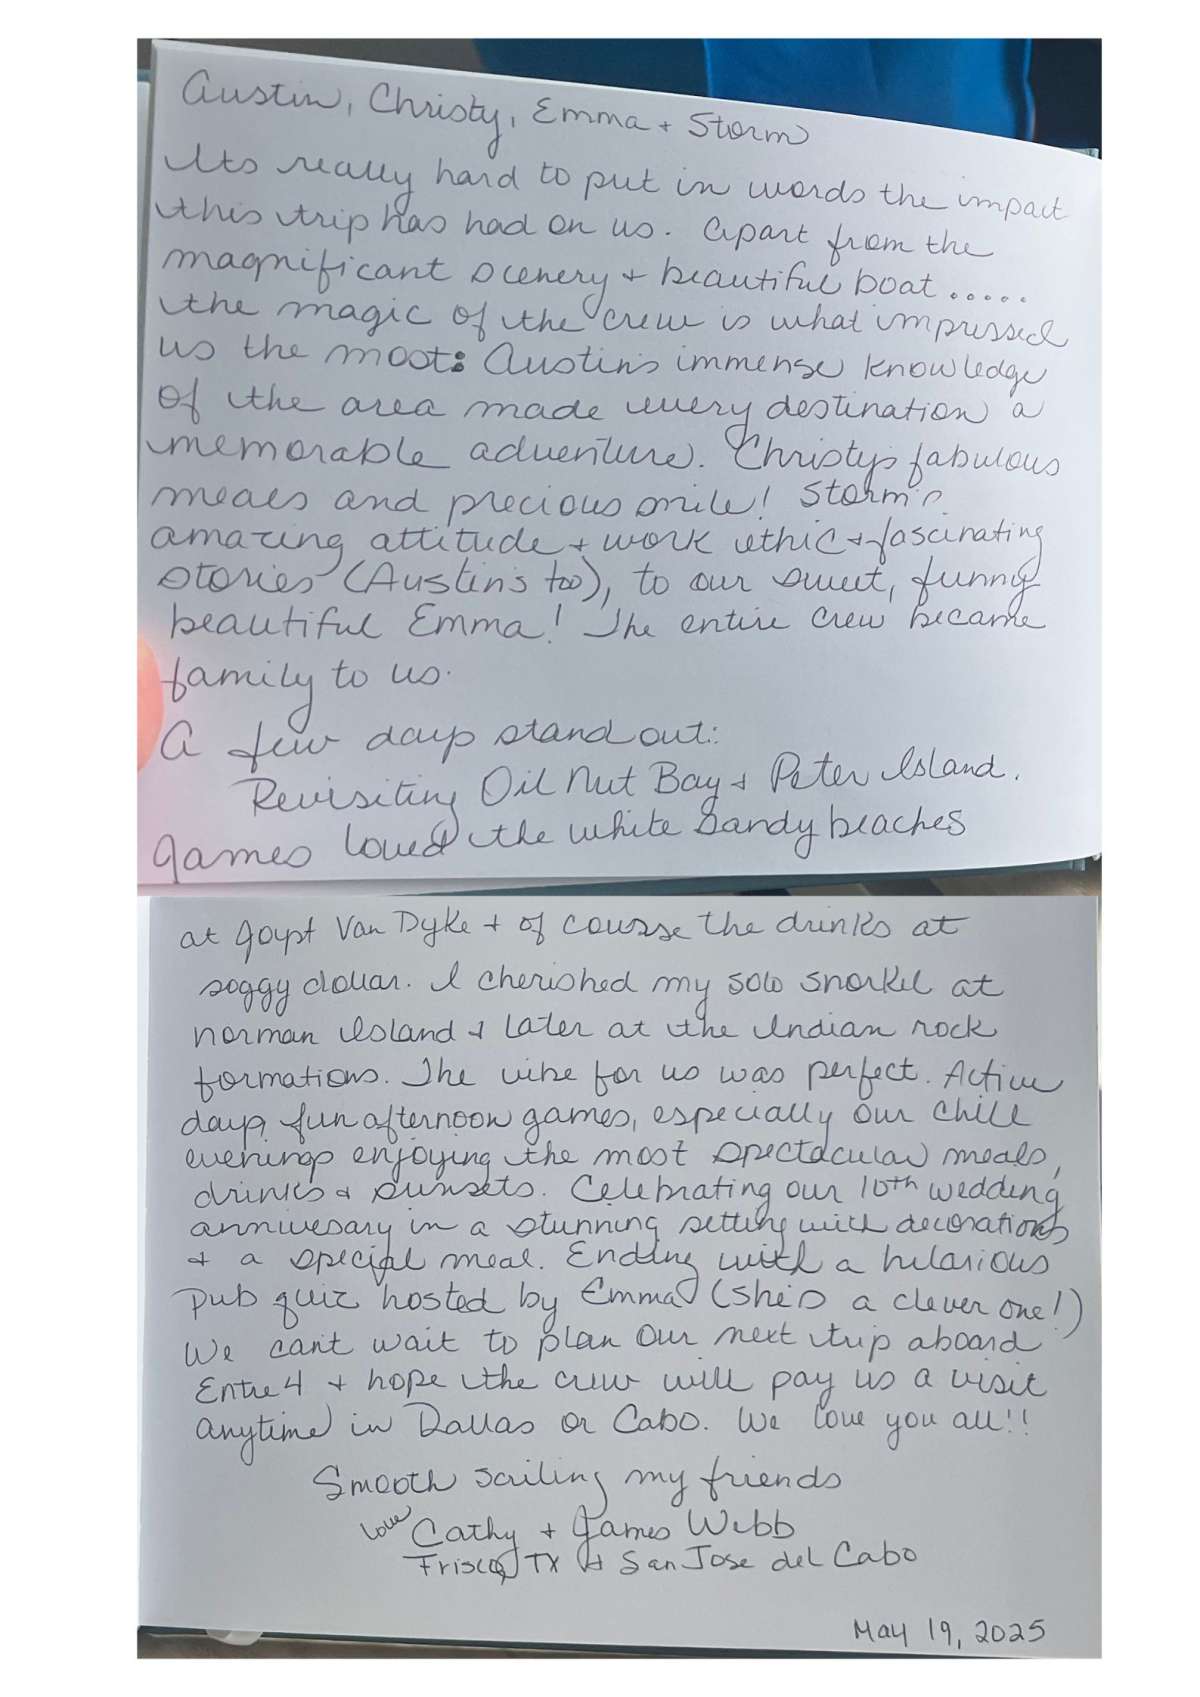 Austin, Christy, Emma + Storm
Its really hard to put in words the impact
this trip has had on us. Apart from the
magnificant scenery + beautiful boat .....
the magic of the crew is what impressed
us the most: Austin's immense knowledge
of the area made every destination a
memorable adventure. Christy's fabulous
meals and precious smile! Storm's
amazing attitude + work ethic + fascinating
stories (Austin's too), to our sweet, funny
beautiful Emma! The entire crew became
family to us.
A few days stand out:
Revisiting Oil Nut Bay + Peter Island.
James loved the white sandy beaches
at Joyst Van Dyke + of course the drinks at
soggy dollar. I cherished my solo snorkel at
Norman Island + later at the Indian rock
formations. The vibe for us was perfect. Active
days, fun afternoon games, especially our chill
evenings enjoying the most spectacular meals,
drinks + sunsets. Celebrating our 10th wedding
annivesary in a stunning setting with decorations
+ a special meal. Ending with a hilarious
pub quiz hosted by Emma (she's a clever one!)
We can't wait to plan our next trip aboard
Entre 4 + hope the crew will pay us a visit
anytime in Dallas or Cabo. We love you all!!
Smooth sailing my friends
love Cathy + James Webb
Frisco, TX + San Jose del Cabo
May 19, 2025